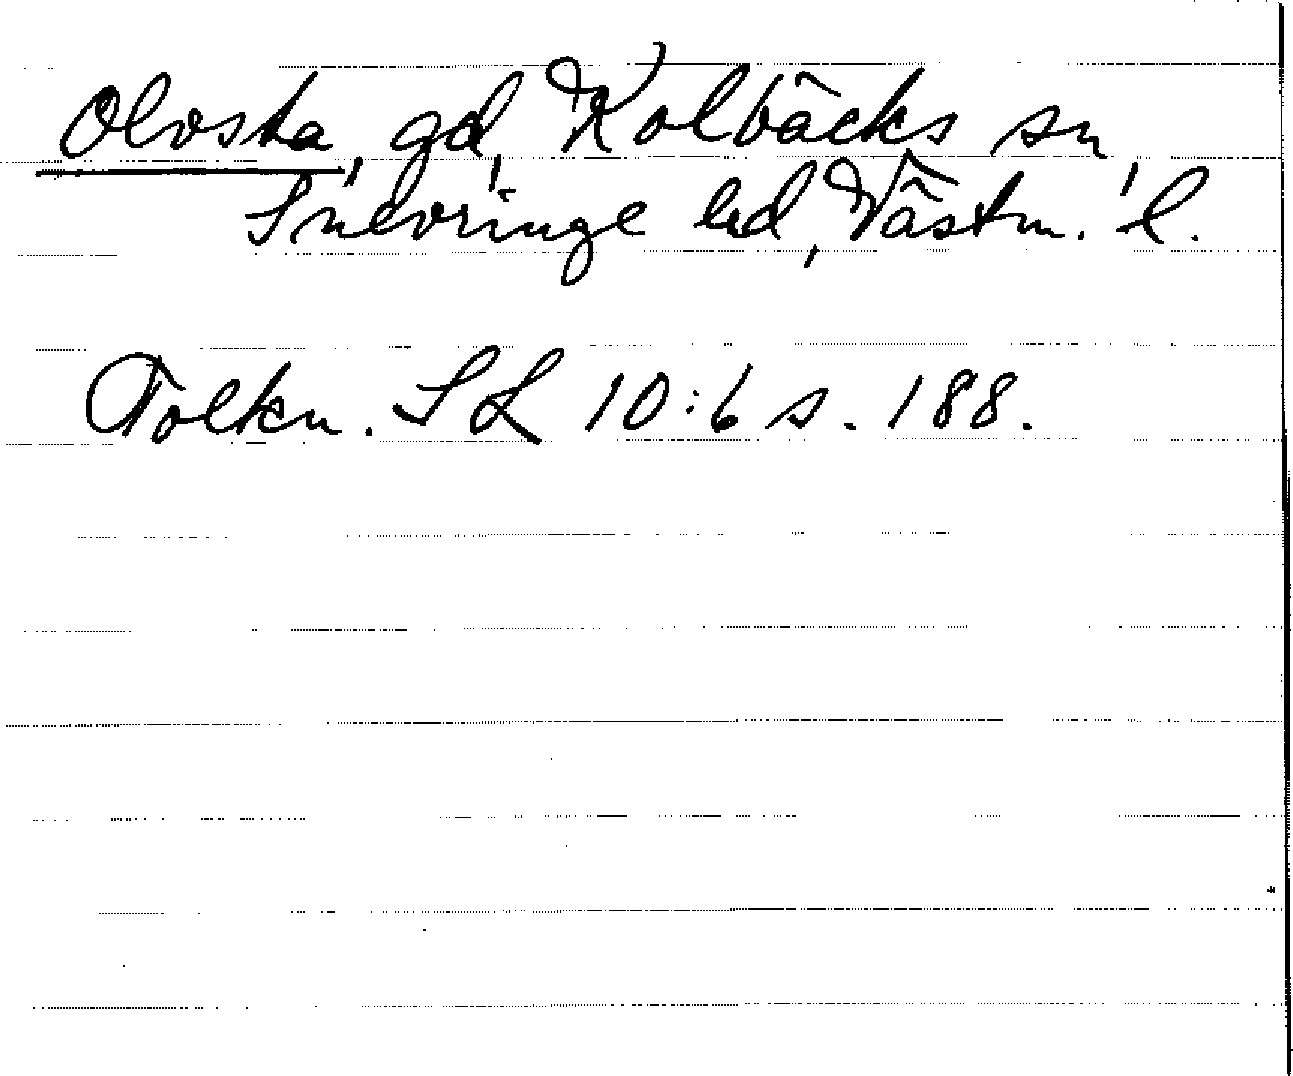 Olvsta, gd, Kolbäcks sn,
Snevringe hd, Västm. l.
Tolkn. SL 10:6 s. 188.